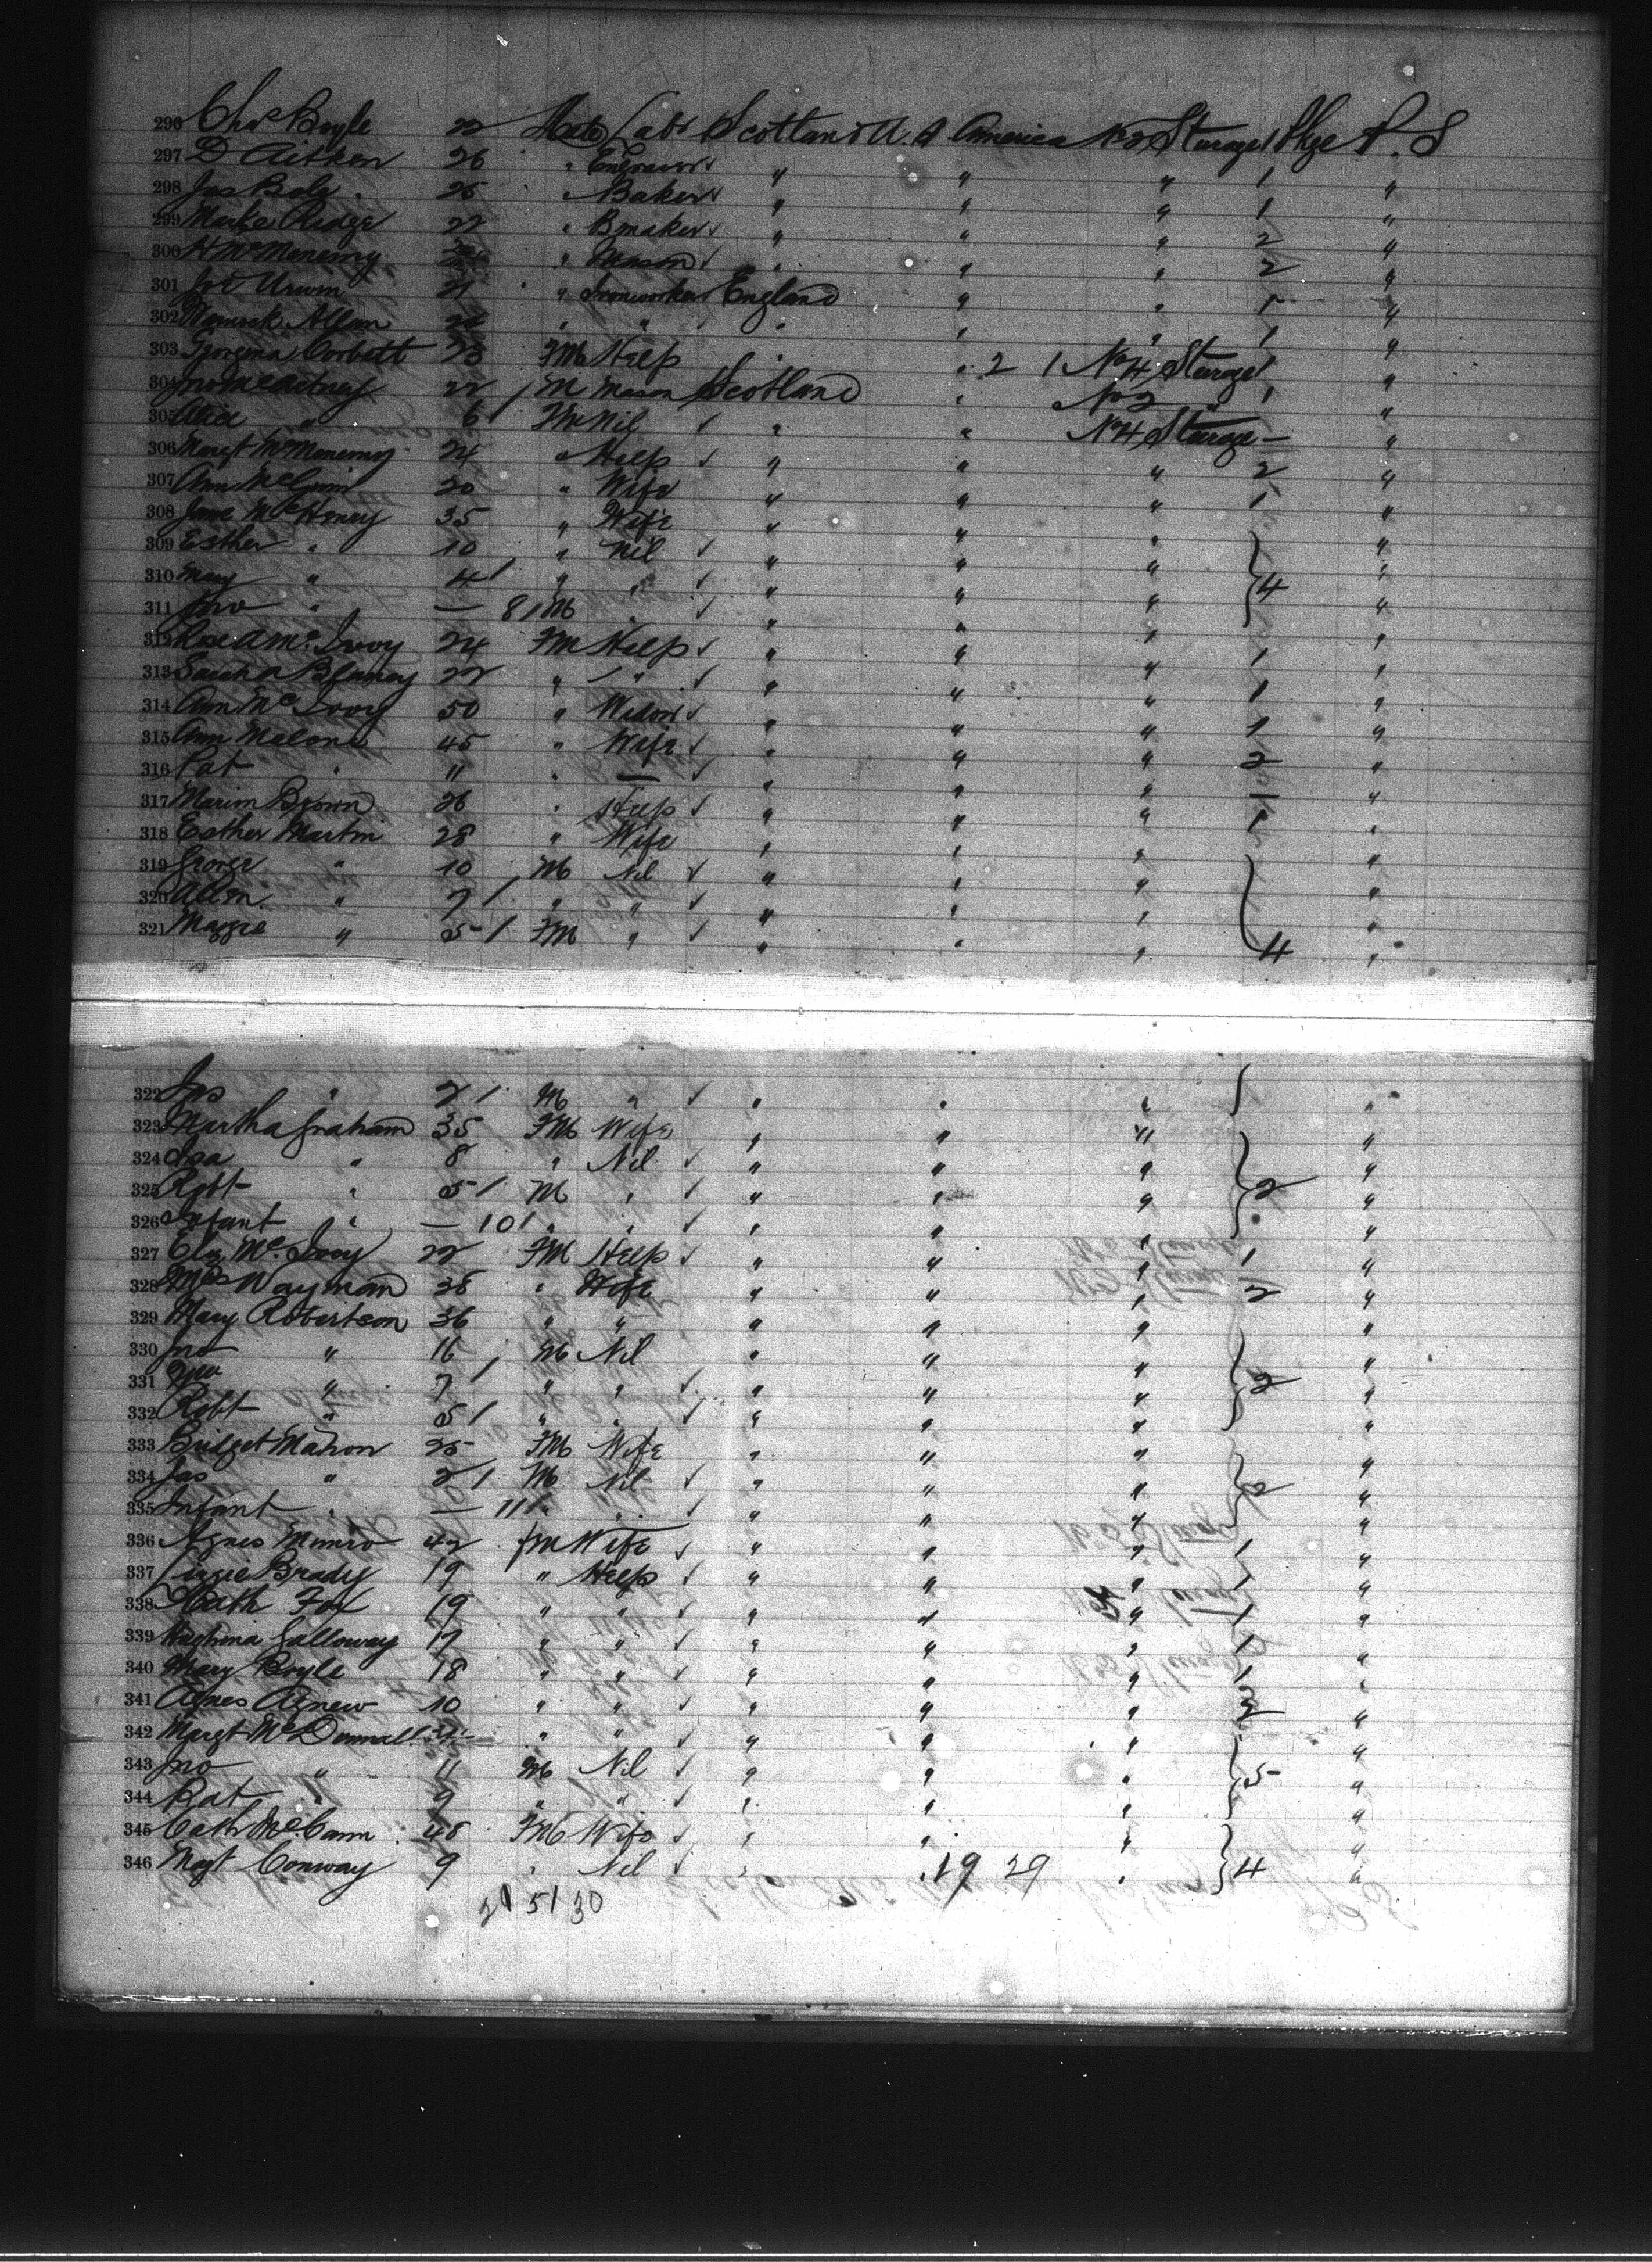 296 Chas Boyle 22 Male Labr Scotland U. S. America No 2 Sturage 1 Pkge P. S
297 D Aitken 26 " Engraver " " " 1 "
298 Jas Bole 25 " Baker " " " 1 "
299 22 " Bmaker " " " 2 "
300 H McMenemy " Mason " " " 2 "
301 21 " Ironworker England " " 1 "
302 Allan " " " " " 1 "
303 Georgina Corbett 23 FM Help " " 2 1 No 4 Sturage 1 "
304 22 M Mason Scotland " No 2 " 1 "
305 " 6 / FM Nil " " No 4 Sturage — "
306 Margt McMenemy 24 " Help " " " 2 "
307 Ann 20 " Wife " " " 1 "
308 Jane McHenry 35 " Wife " " " "
309 Esther " 10 " Nil " " " "
310 Mary " 4 / " " " " " 4 "
311 Jno " — 8 / M " " " " "
312 24 FM Help " " " 1 "
313 Sarah Blaney 22 " " " " " 1 "
314 Ann McIvoy 50 " Widow " " " 1 "
315 Ann Malone 45 " Wife " " " 2 "
316 Pat " 11 " — " " " — "
317 Brown 26 " Help " " " 1 "
318 Esther Martin 28 " Wife " " " "
319 George " 10 M Nil " " " "
320 Allen " 7 / " " " " " "
321 Maggie " 5 / FM " " " " 4 "
322 Jas " 2 / M " " " " "
323 Martha Graham 35 FM Wife " " " "
324 " 8 " Nil " " " "
325 Robt " 5 / M " " " " 2 "
326 Infant " — 10 / " " " " " "
327 Eliz McIvoy 22 FM Help " " " 1 "
328 Mrs Wayman 38 " Wife " " " 2 "
329 Mary Robertson 36 " " " " " "
330 Jno " 16 M Nil " " " "
331 " 7 / " " " " " 2 "
332 Robt " 5 / " " " " " "
333 Bridget Mahon 25 FM Wife " " " "
334 Jas " 2 / M Nil " " " 2 "
335 Infant " — 11 / " " " " " "
336 Agnes Munro 42 FM Wife " " " 1 "
337 Lizzie Brady 19 " Help " " " 1 "
338 Cath Fox 19 " " " " " 1 "
339 Galloway 17 " " " " " 1 "
340 Mary Boyle 18 " " " " " 1 "
341 Agnes Agnew 10 " " " " " "
342 Margt McDonnall " " " " " "
343 Jno " 11 M Nil " " " 5 "
344 Pat " 9 " " " " " "
345 Cath McCann 48 FM Wife " " " "
346 Magt Conway 9 " Nil " " 19 29 " 4 "
51 30